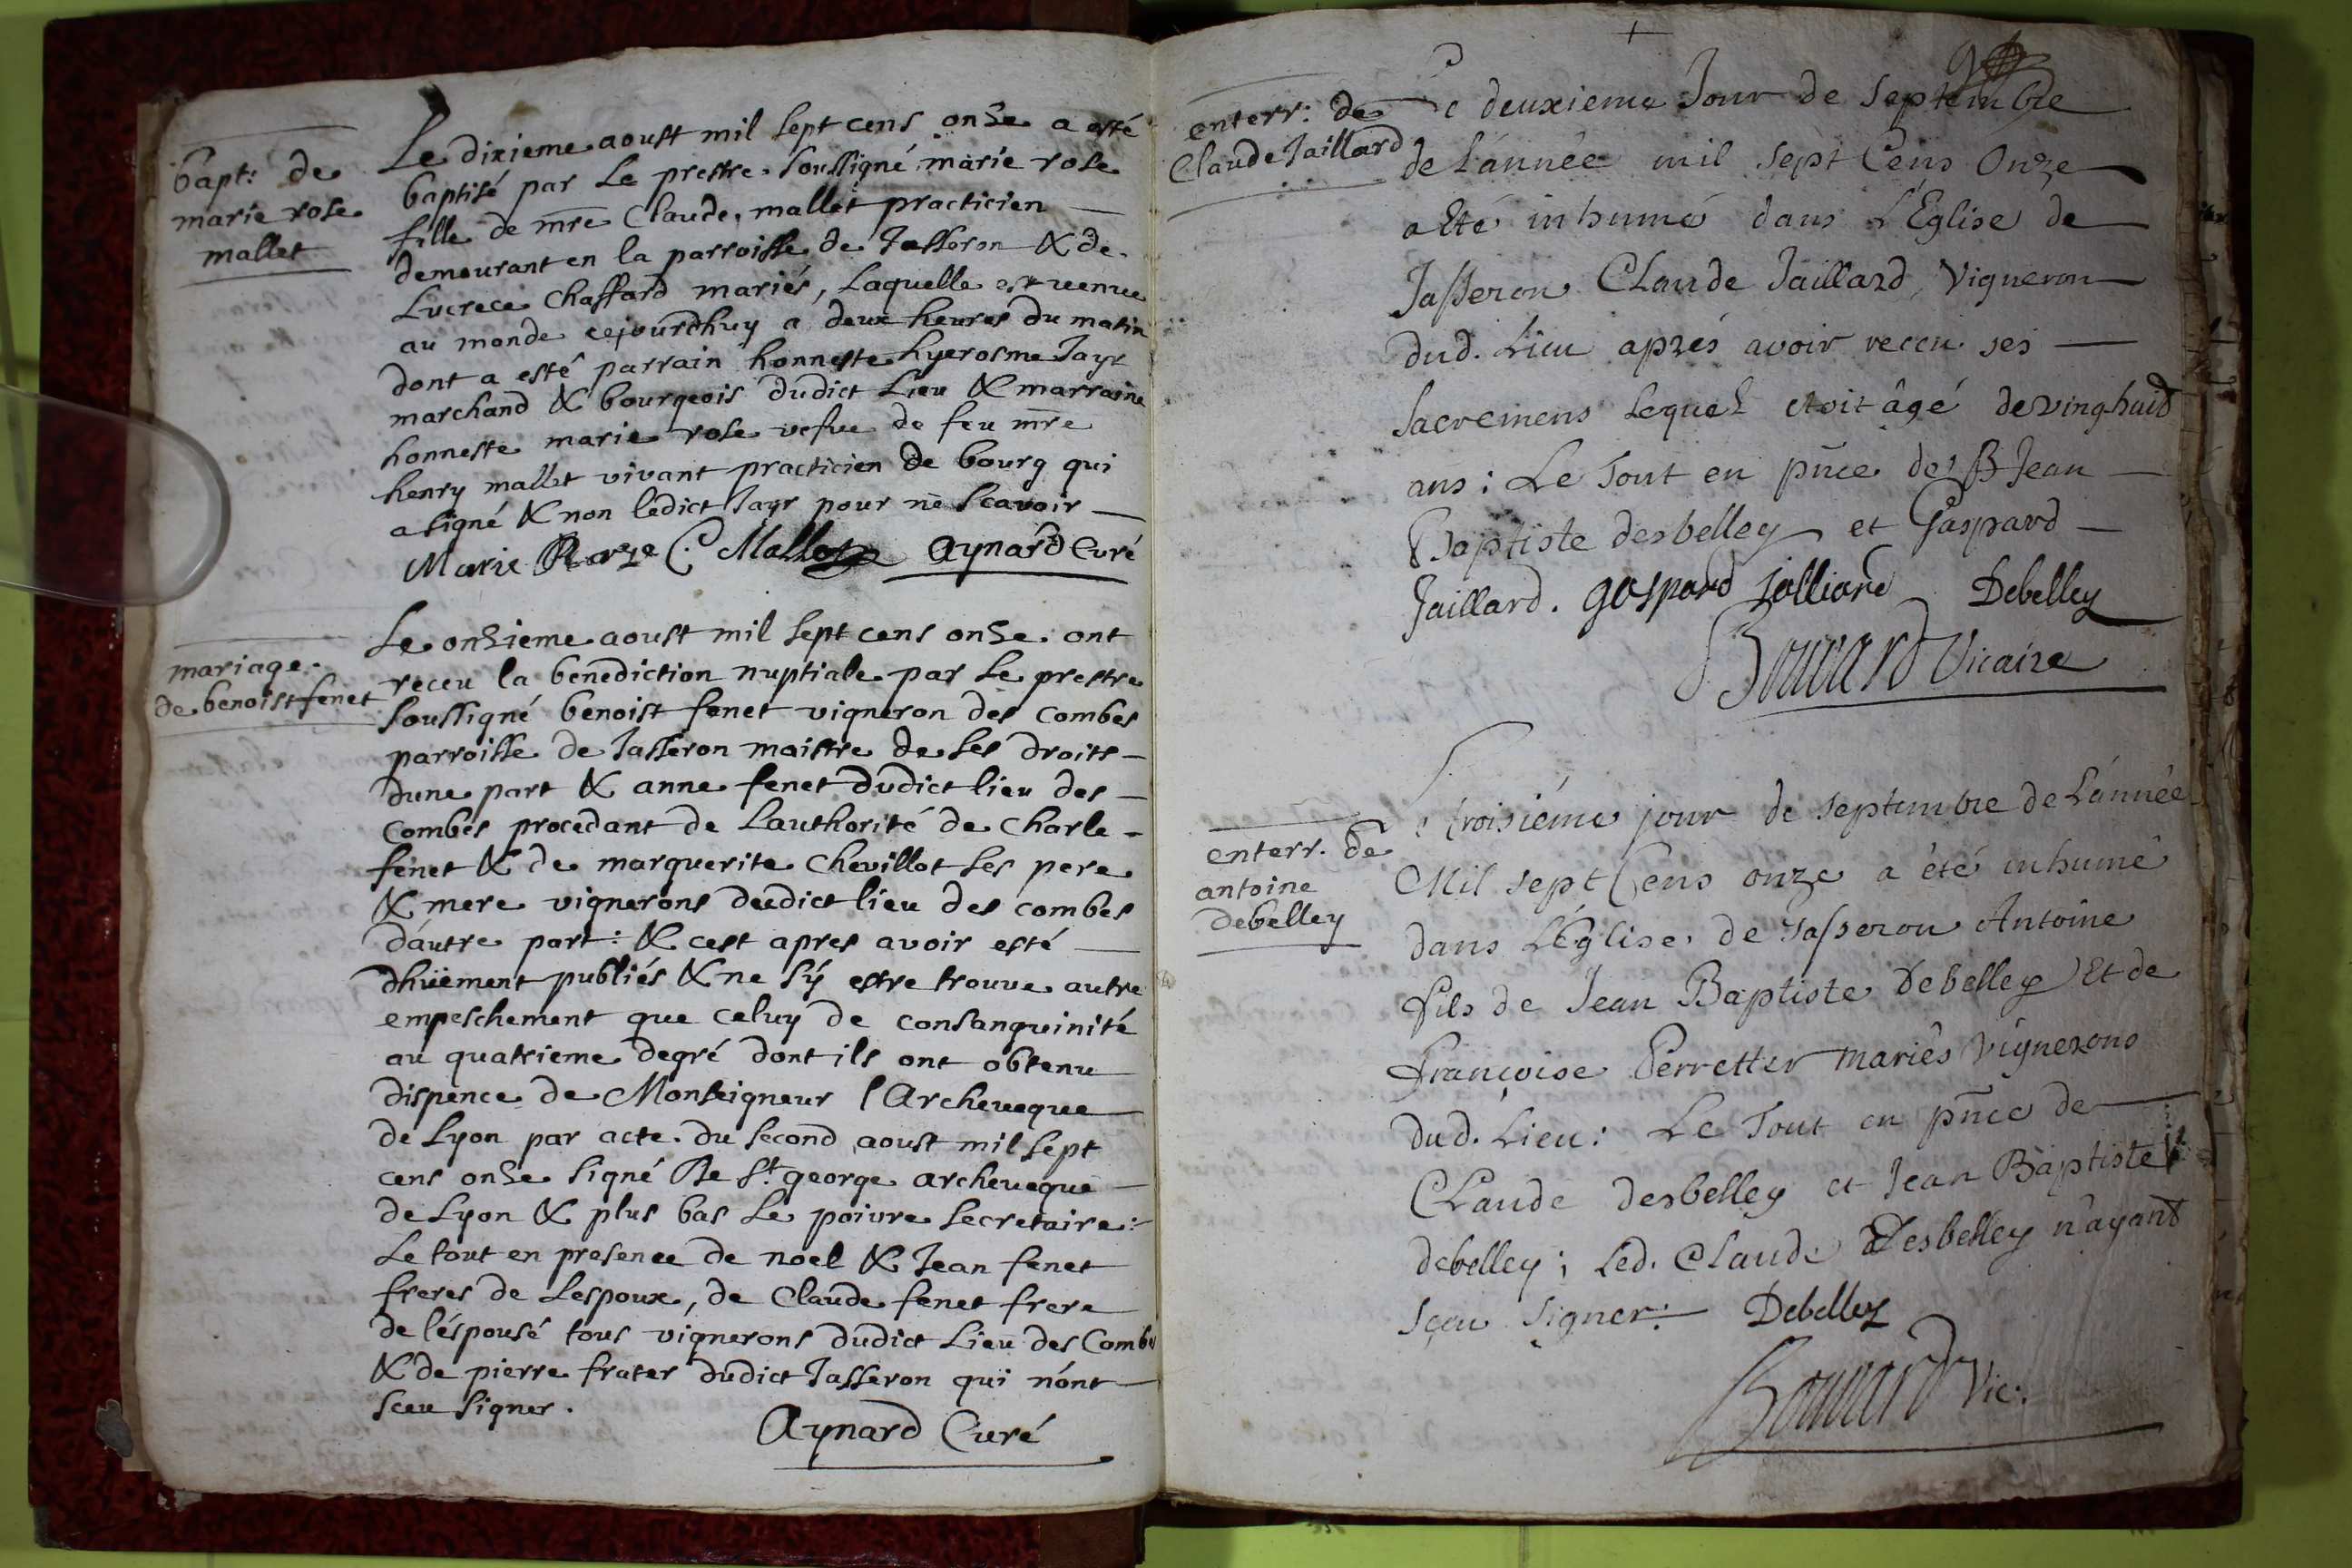 bapt: de
marie rose
mallet
Le dixieme aoust mil sept cens onze a esté
baptisé par Le prestre soussigné marie rose
fille de mre Claude mallet practicien
demeurant en la parroisse de Jasseron & de
Lucrece Chaffard mariés, Laquelle est venue
au monde cejourdhuy a deux heures du matin
dont a esté parrain honneste hyerosme Jayr
marchand & bourgeois dudict Lieu & marraine
honneste marie rose vefve de feu mre
henry mallet vivant practicien de bourg qui
a signé & non ledict Jayr pour ne scavoir
Marie Roze C. Mallet Aynard Curé
mariage
de benoist fenet
Le onzieme aoust mil sept cens onze ont
receu la benediction nuptiale par Le prestre
soussigné benoist fenet vigneron des Combes
parroisse de Jasseron maistre de ses droits
dune part & anne fenet dudict lieu des
Combes procedant de Lauthorité de Charle
fenet & de marguerite Chevillot ses pere
& mere vignerons dudict lieu des combes
dautre part: & cest apres avoir esté
dhüement publiés & ne sÿ estre trouve autre
empeschement que celuy de consanguinité
au quatrieme degré dont ils ont obtenu
dispence de Monseigneur l'Archeveque
de Lyon par acte du second aoust mil sept
cens onze signé De St. george archeveque
de Lyon & plus bas Le poivre secretaire:
Le tout en presence de noel & Jean fenet
freres de Lespoux, de Claude fenet frere
de léspousé tous vignerons dudict Lieu des Combes
& de pierre frater dudict Jasseron qui n'ont
sceu signer.
Aynard Curé
enterr: de
Claude Jaillard
Le deuxieme Jour de Septembre
de L'année mil sept Cens Onze
a Eté inhumé dans L'Eglise de
Jasseron Claude Jaillard, Vigneron
dud. Lieu aprés avoir receu ses
Sacremens Lequel etoit âgé de ving-huid
ans: Le Tout en pnce de Jean
Baptiste desbelley et Gaspard
Jaillard. gaspard jalliard Debelley
Bouvard Vicaire
enterr. de
antoine
debelley
Le troisiéme jour de septembre de L'année
Mil sept Cens onze a été inhumé
dans L'Eglise de Jasseron Antoine
fils de Jean Baptiste Debelley Et de
Françoise Perretter mariés Vignerons
dud. Lieu: Le Tout en pnce de
Claude desbelley et Jean Baptiste
debelley; Led. Claude Desbelley n'ayant
sçeu signer: Debelley
Bouvard Vic: